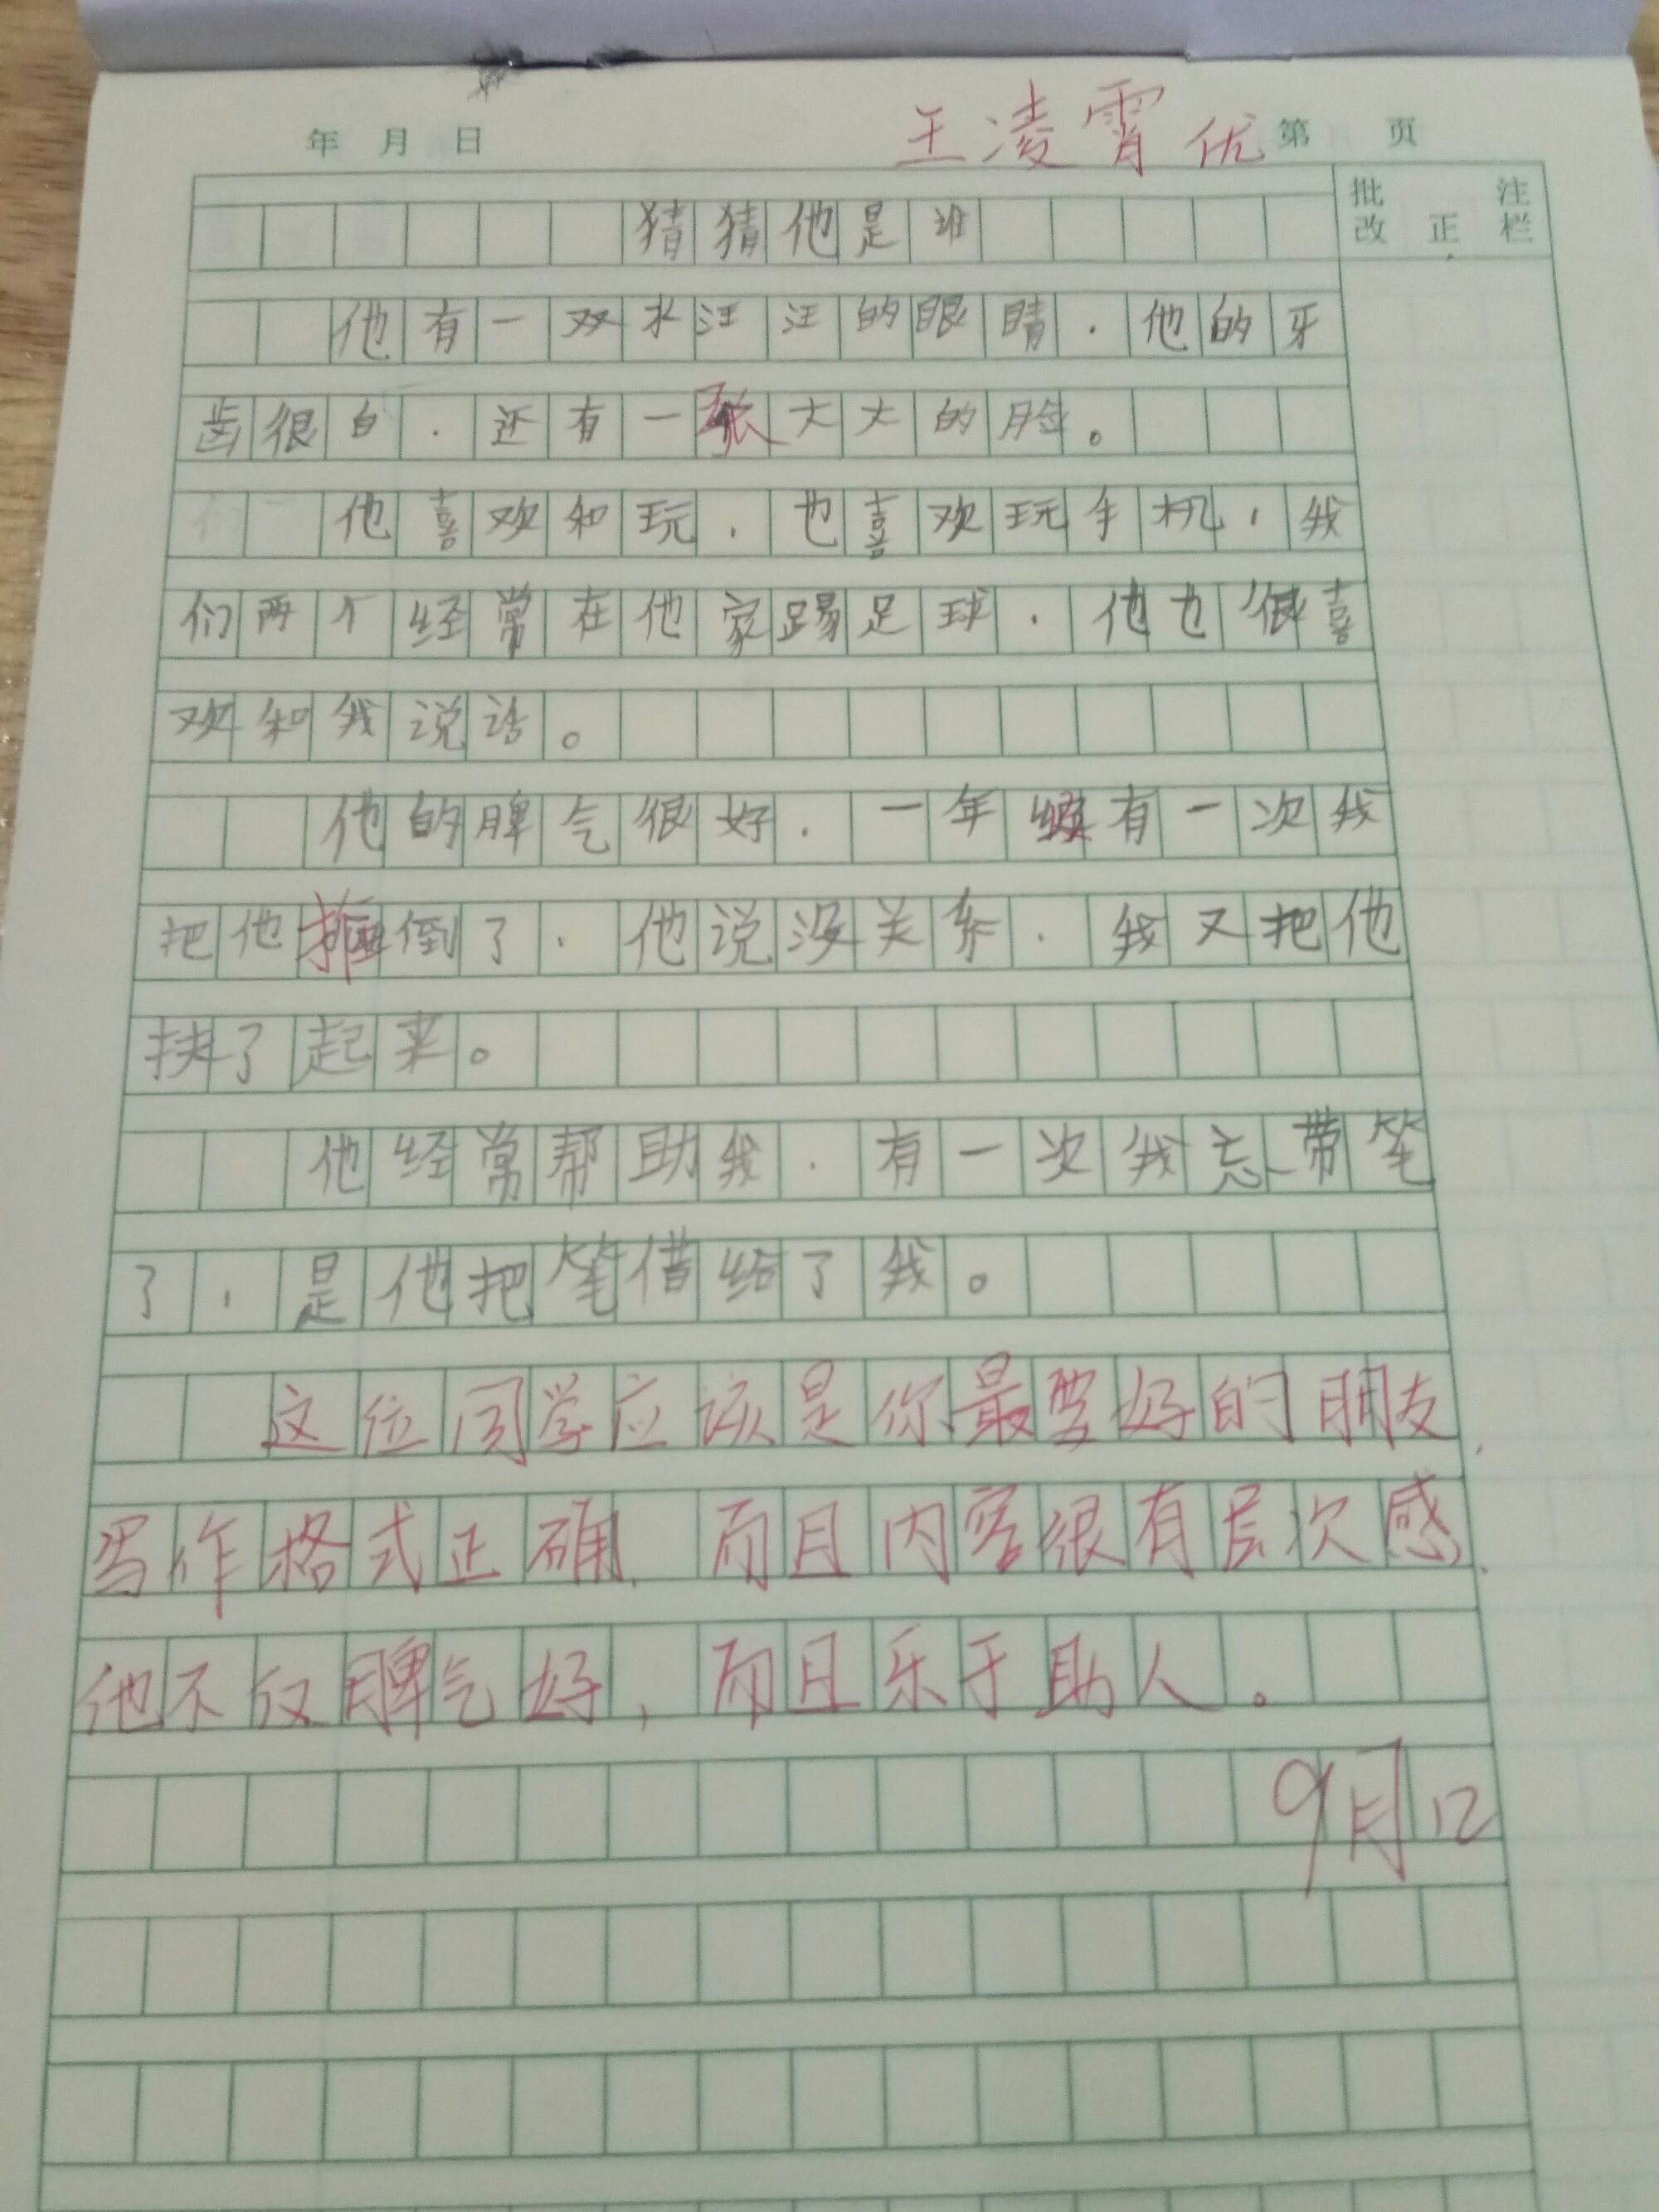 王凌霄 优
年 月 日 第 页
批 注
改 正 栏
猜猜他是谁
他有一双水汪汪的眼睛.他的牙
齿很白.还有一张大大的脸。
他喜欢和玩,也喜欢玩手机,我
们两个经常在他家踢足球.他也很喜
欢和我说话。
他的脾气很好.一年级有一次我
把他撞倒了.他说没关系.我又把他
扶了起来。
他经常帮助我.有一次我忘带笔
了,是他把笔借给了我。
这位同学应该是你最要好的朋友,
写作格式正确,而且内容很有层次感,
他不仅脾气好,而且乐于助人。
9月12